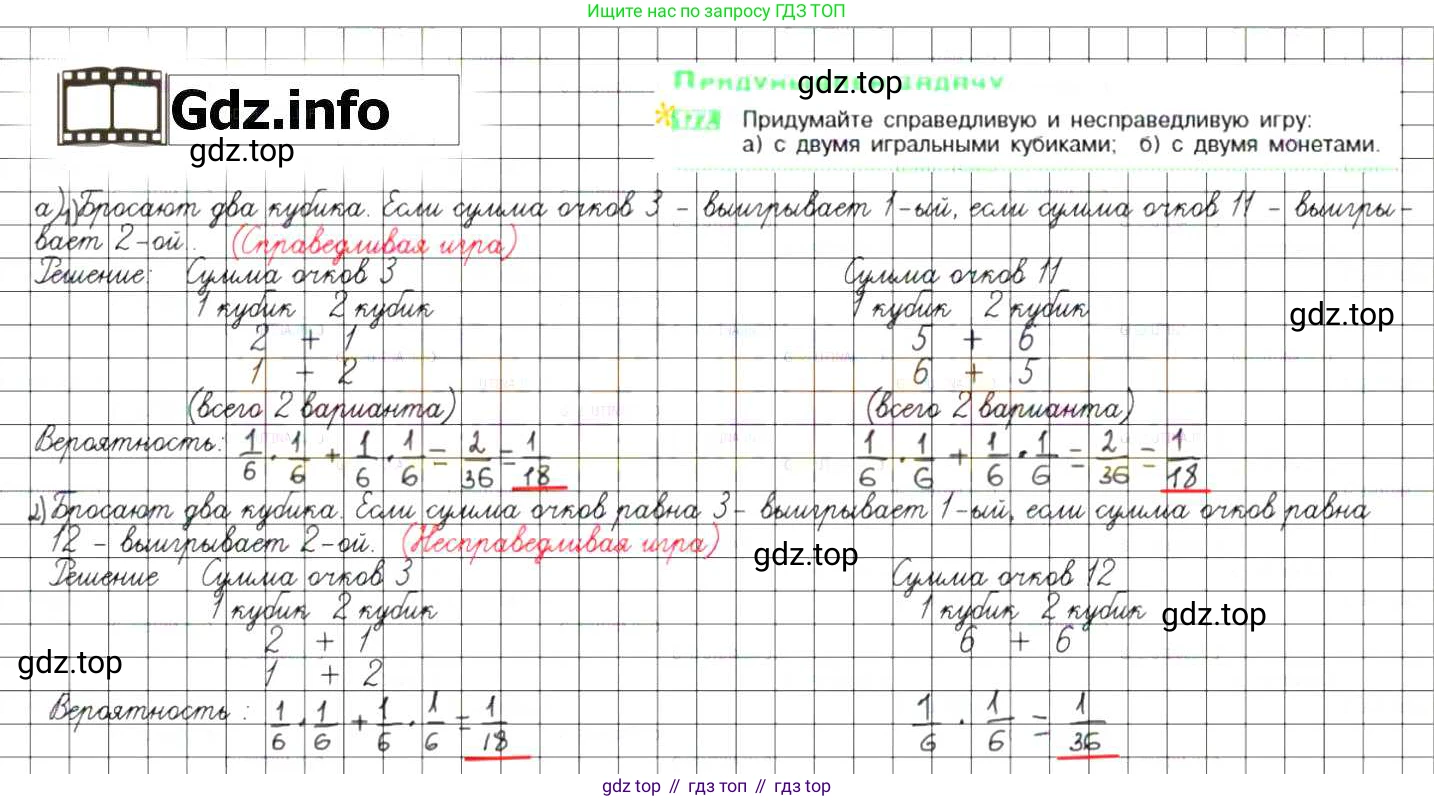 Ищите нас по запросу ГДЗ ТОП
Gdz.info
gdz.top
Придумываем задачу
gdz.top
177. Придумайте справедливую и несправедливую игру:
а) с двумя игральными кубиками; б) с двумя монетами.
а) 1) Бросают два кубика. Если сумма очков 3 - выигрывает 1-ый, если сумма очков 11 - выигры-
вает 2-ой. (Справедливая игра)
Решение: Сумма очков 3 Сумма очков 11
1 кубик 2 кубик 1 кубик 2 кубик
gdz.top
2 + 1 5 + 6
1 + 2 6 + 5
(всего 2 варианта) (всего 2 варианта)
Вероятность: 1/6 · 1/6 + 1/6 · 1/6 = 2/36 = 1/18 1/6 · 1/6 + 1/6 · 1/6 = 2/36 = 1/18
2) Бросают два кубика. Если сумма очков равна 3 - выигрывает 1-ый, если сумма очков равна
12 - выигрывает 2-ой. (Несправедливая игра)
gdz.top
Решение Сумма очков 3 Сумма очков 12
1 кубик 2 кубик 1 кубик 2 кубик
gdz.top
2 + 1 6 + 6
gdz.top
1 + 2
Вероятность: 1/6 · 1/6 + 1/6 · 1/6 = 1/18 1/6 · 1/6 = 1/36
gdz top // гдз топ // гдз top